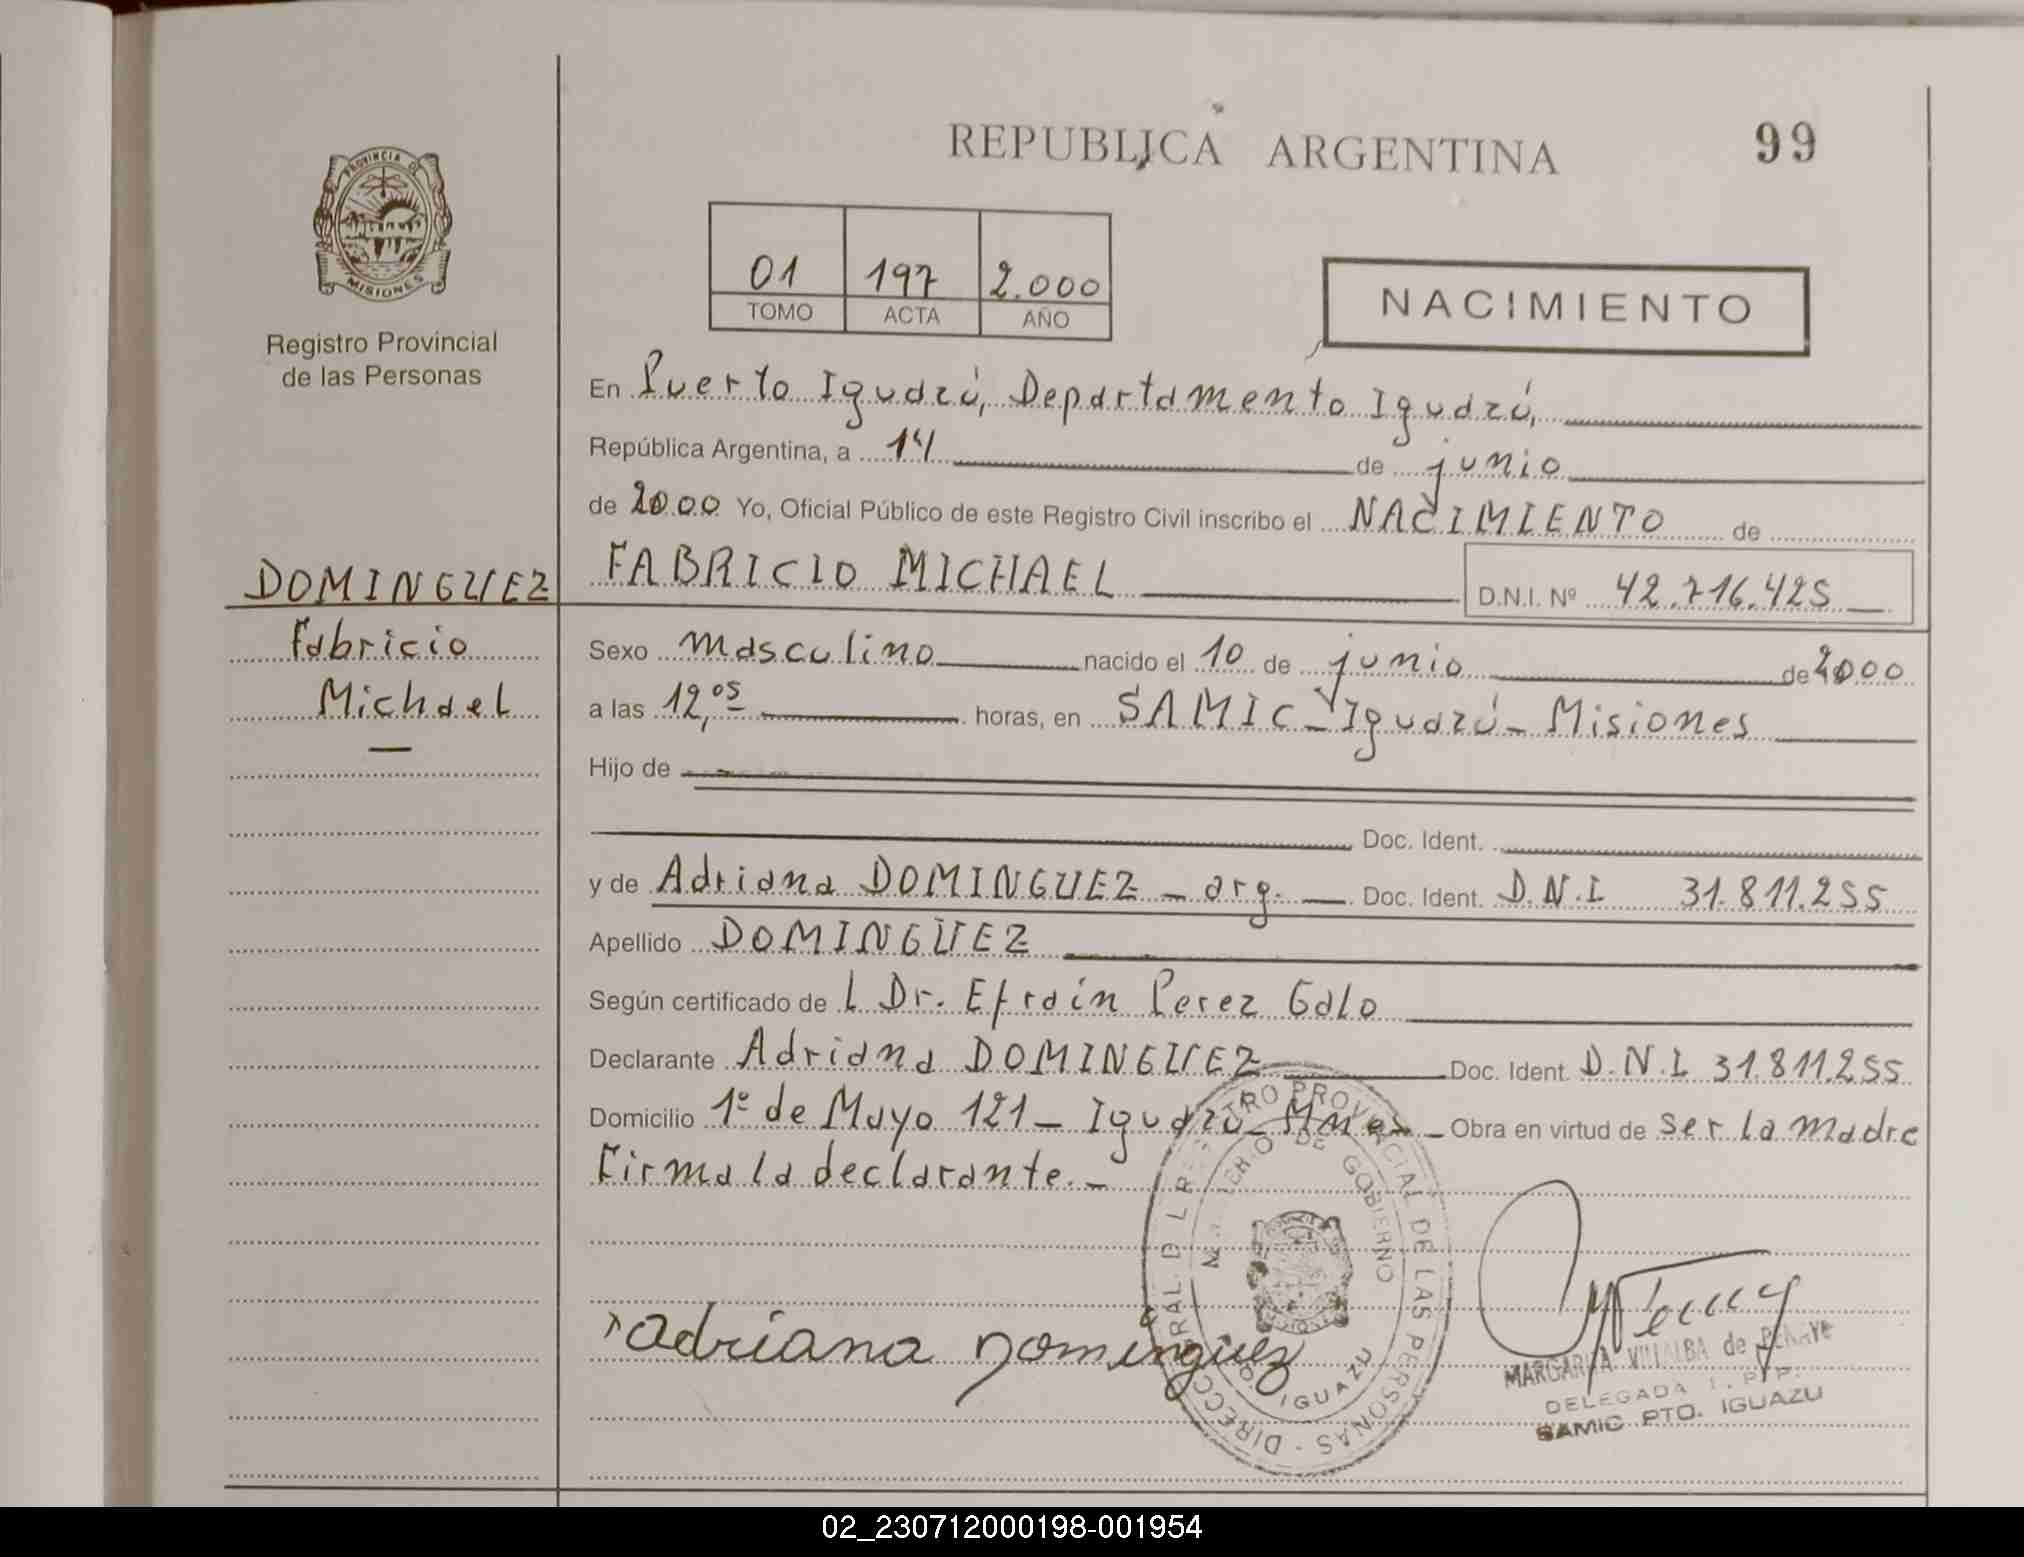 REPUBLICA ARGENTINA 99
PROVINCIA DE MISIONES
Registro Provincial
de las Personas
01 197 2.000
TOMO ACTA AÑO
NACIMIENTO
En Puerto Iguazú, Departamento Iguazú,
República Argentina, a 14 de junio
de 2000 Yo, Oficial Público de este Registro Civil inscribo el NACIMIENTO de
DOMINGUEZ FABRICIO MICHAEL D.N.I. Nº 42.716.425
Fabricio
Michael
Sexo masculino nacido el 10 de junio de 2000
a las 12,05 horas, en SAMIC - Iguazú - Misiones
Hijo de
Doc. Ident.
y de Adriana DOMINGUEZ - arg. - Doc. Ident. D.N.I 31.811.255
Apellido DOMINGUEZ
Según certificado de L Dr. Efraín Perez Galo
Declarante Adriana DOMINGUEZ Doc. Ident. D.N.I 31.811.255
Domicilio 1º de Mayo 121 - Iguazú - Mnes - Obra en virtud de ser la madre
Firma la declarante. -
DIRECC GRAL. D L REGISTRO PROVINCIAL DE LAS PERSONAS
MINISTERIO DE GOBIERNO
IGUAZU
Adriana Dominguez
MARGARITA VILLALBA de
DELEGADA
SAMIC PTO. IGUAZU
02_230712000198-001954